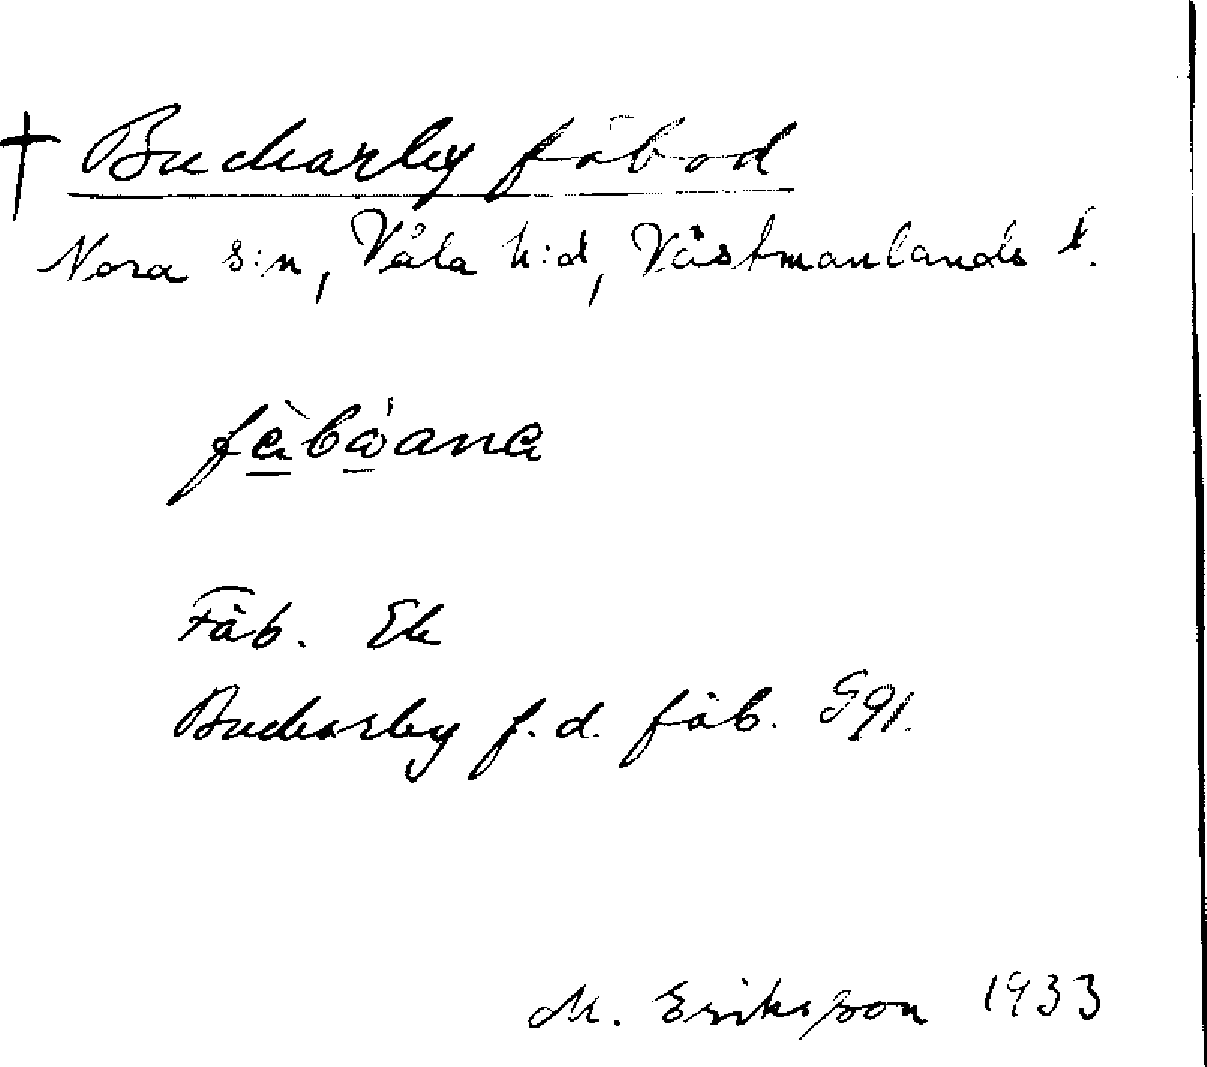 † Buckarby fäbod
Nora s:n, Våla h:d, Västmanlands l.
fäbòana
Fäb. Ek
Buckarby f.d. fäb. G91.
M. Eriksson 1933